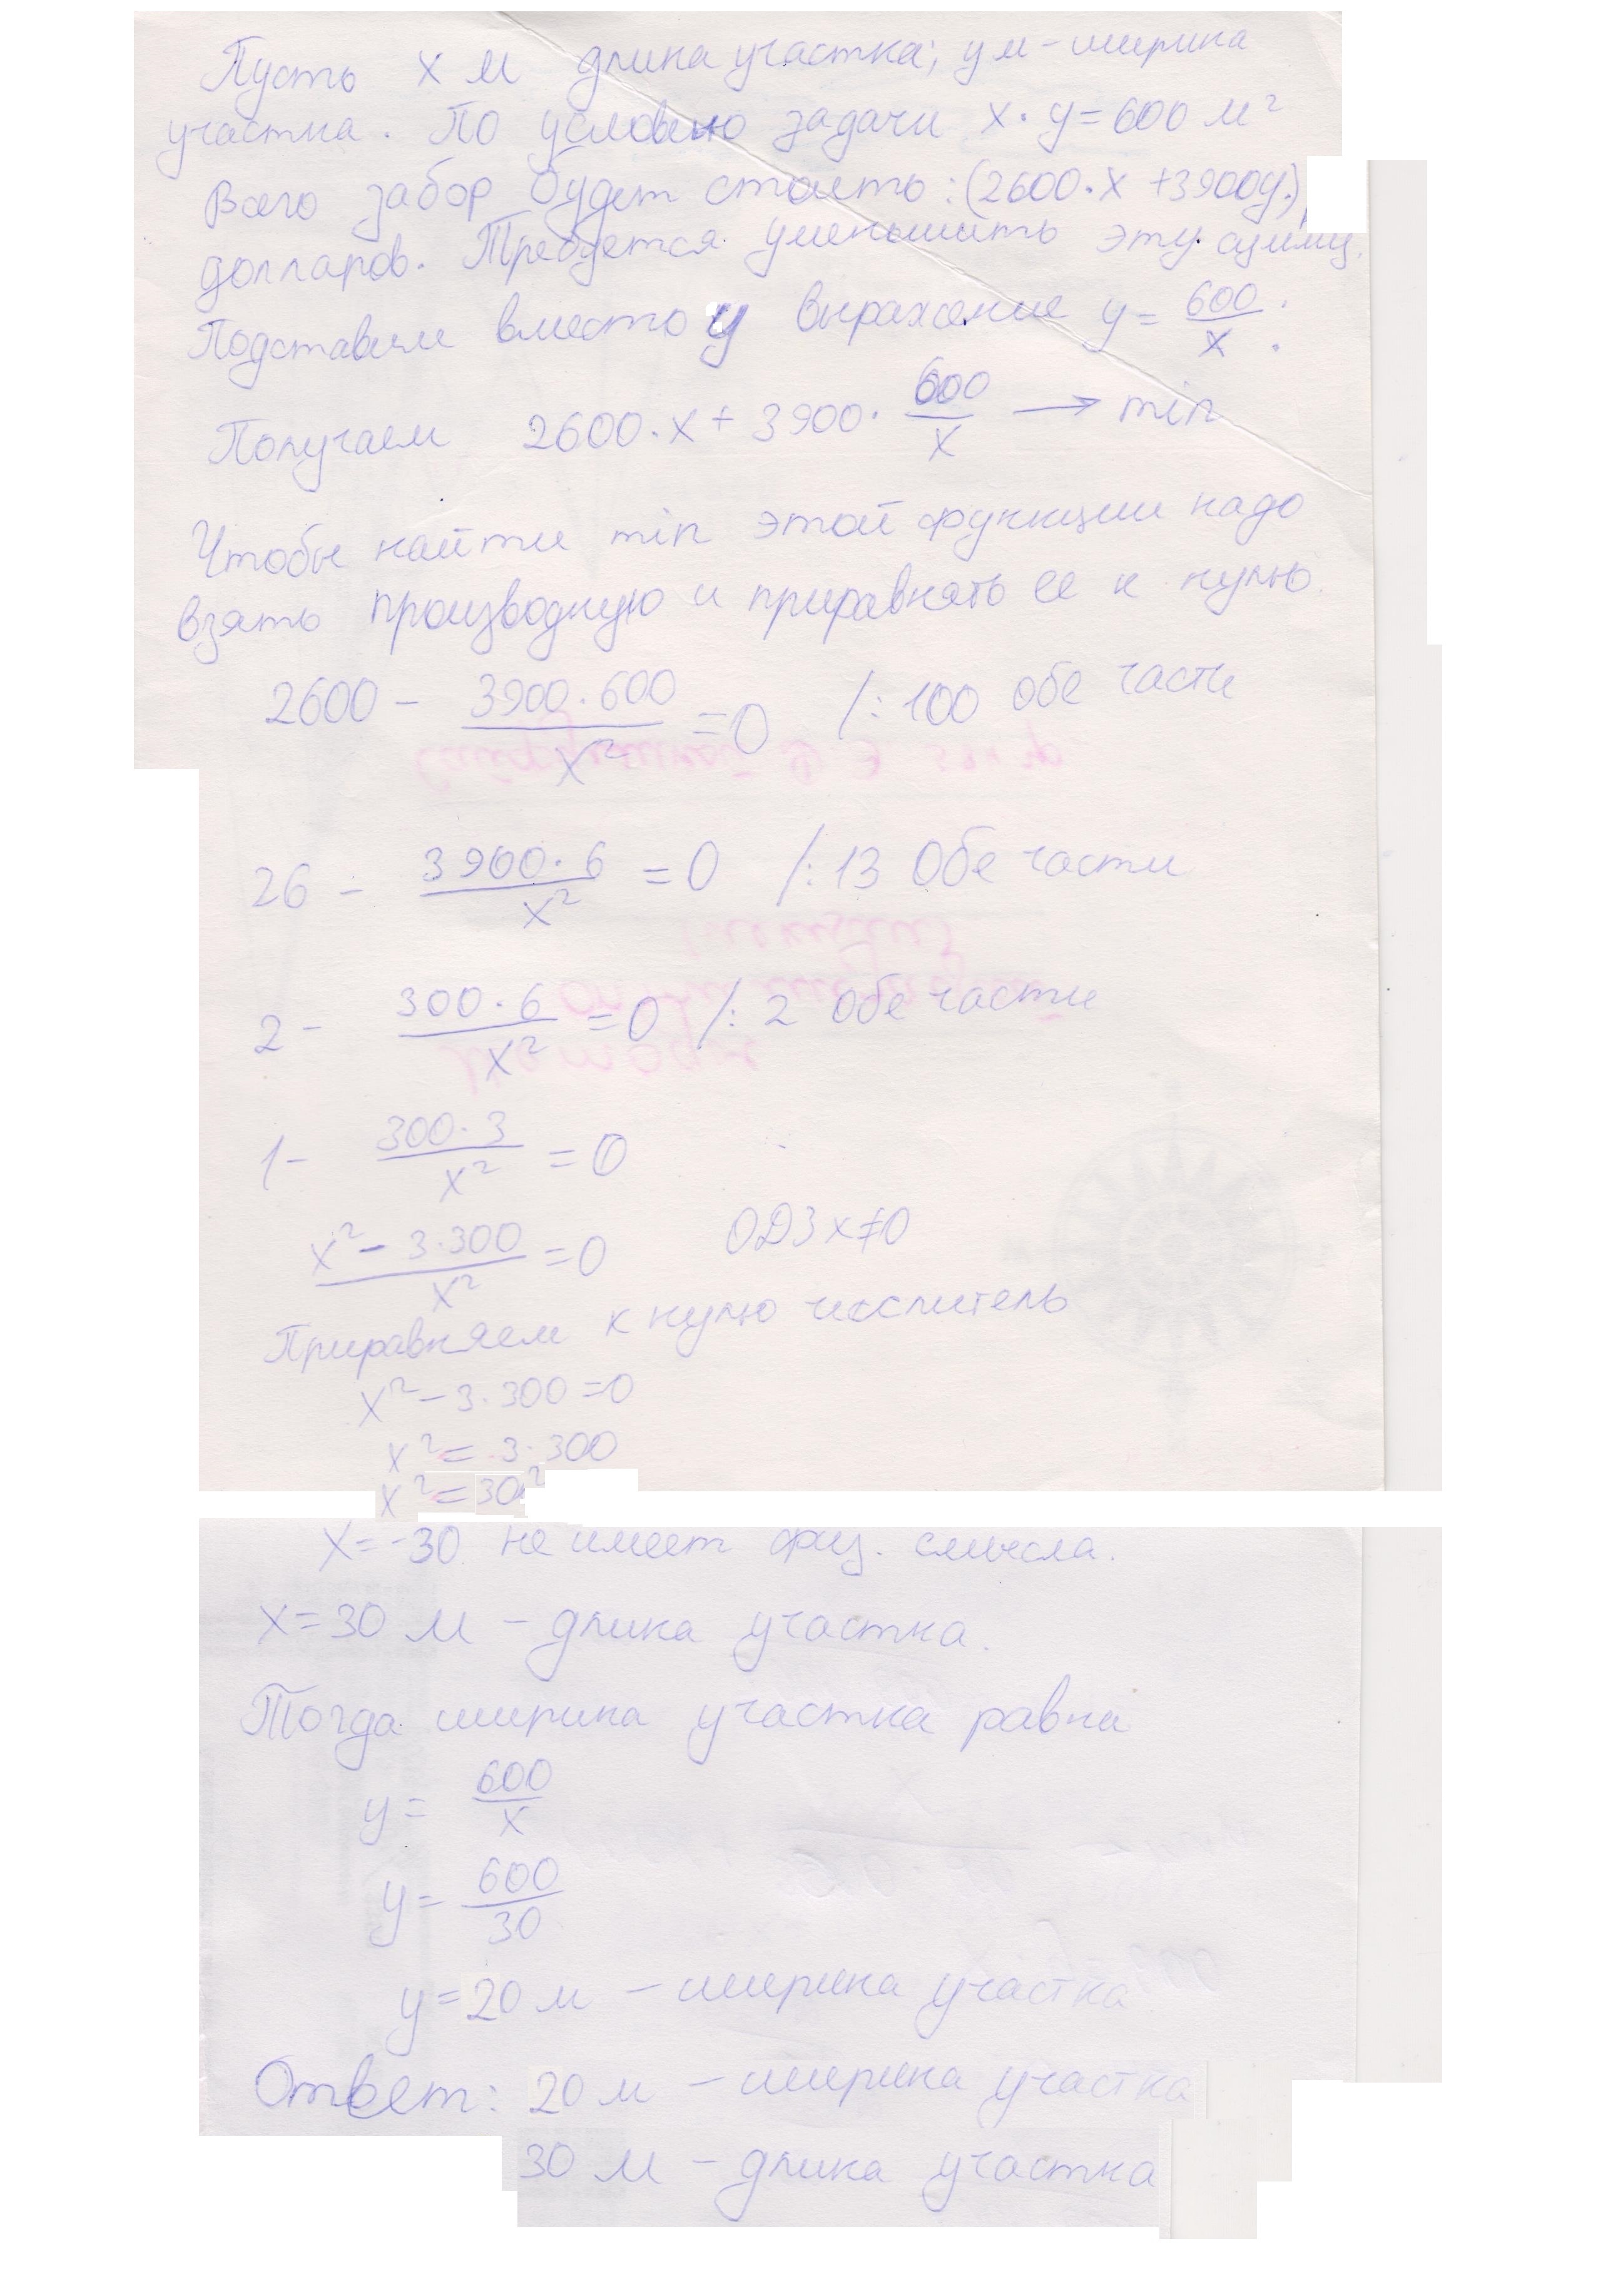 Пусть х м длина участка; у м - ширина
участка. По условию задачи x · y = 600 м²
Всего забор будет стоить: (2600·x + 3900y.)
долларов. Требуется уменьшить эту сумму.
Подставим вместо у выражение y = 600/x.
Получаем 2600·x + 3900· 600/x → min
Чтобы найти min этой функции надо
взять производную и приравнять ее к нулю.
2600 - 3900·600/x² = 0 /: 100 обе части
26 - 3900·6/x² = 0 /: 13 обе части
2 - 300·6/x² = 0 /: 2 обе части
1 - 300·3/x² = 0
(x² - 3·300)/x² = 0 ОДЗ x≠0
Приравняем к нулю числитель
x² - 3·300 = 0
x² = 3·300
x² = 30²
x = -30. не имеет физ. смысла.
x = 30 м - длина участка.
Тогда ширина участка равна
y = 600/x
y = 600/30
y = 20 м - ширина участка
Ответ: 20 м - ширина участка
30 м - длина участка